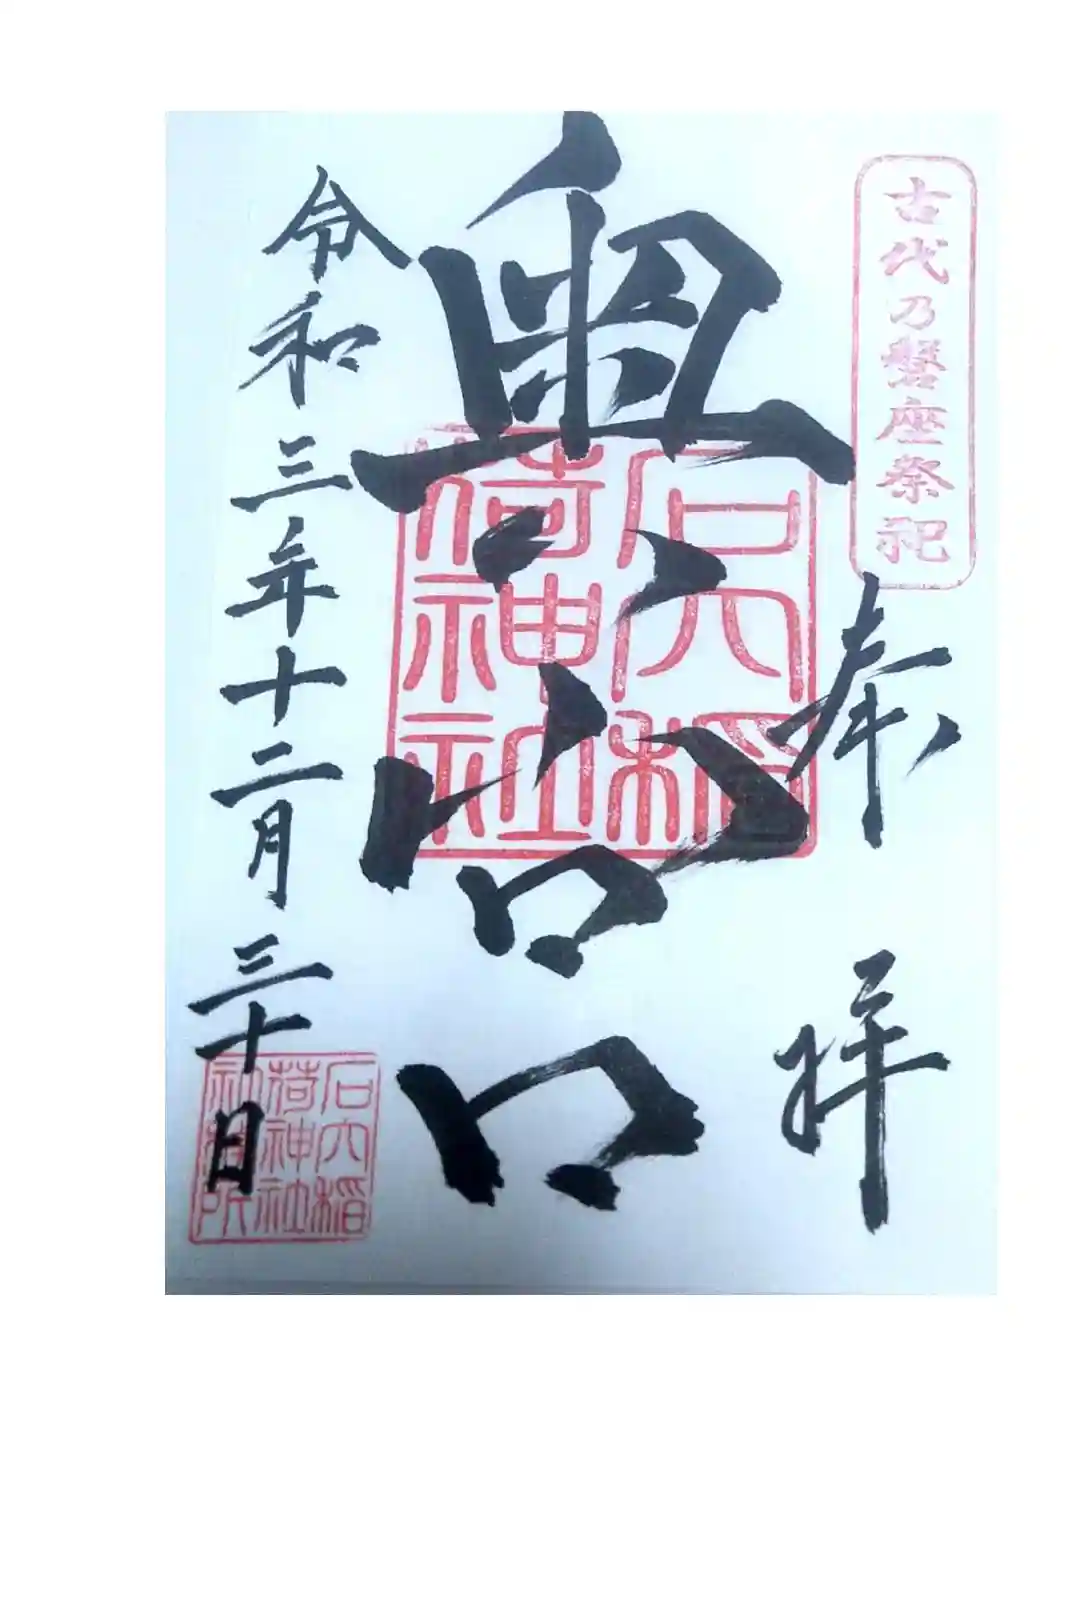 古代乃磐座祭祀
奉拝
奥宮
石穴稲荷神社
令和三年十二月三十日
石穴稲荷神社社務所